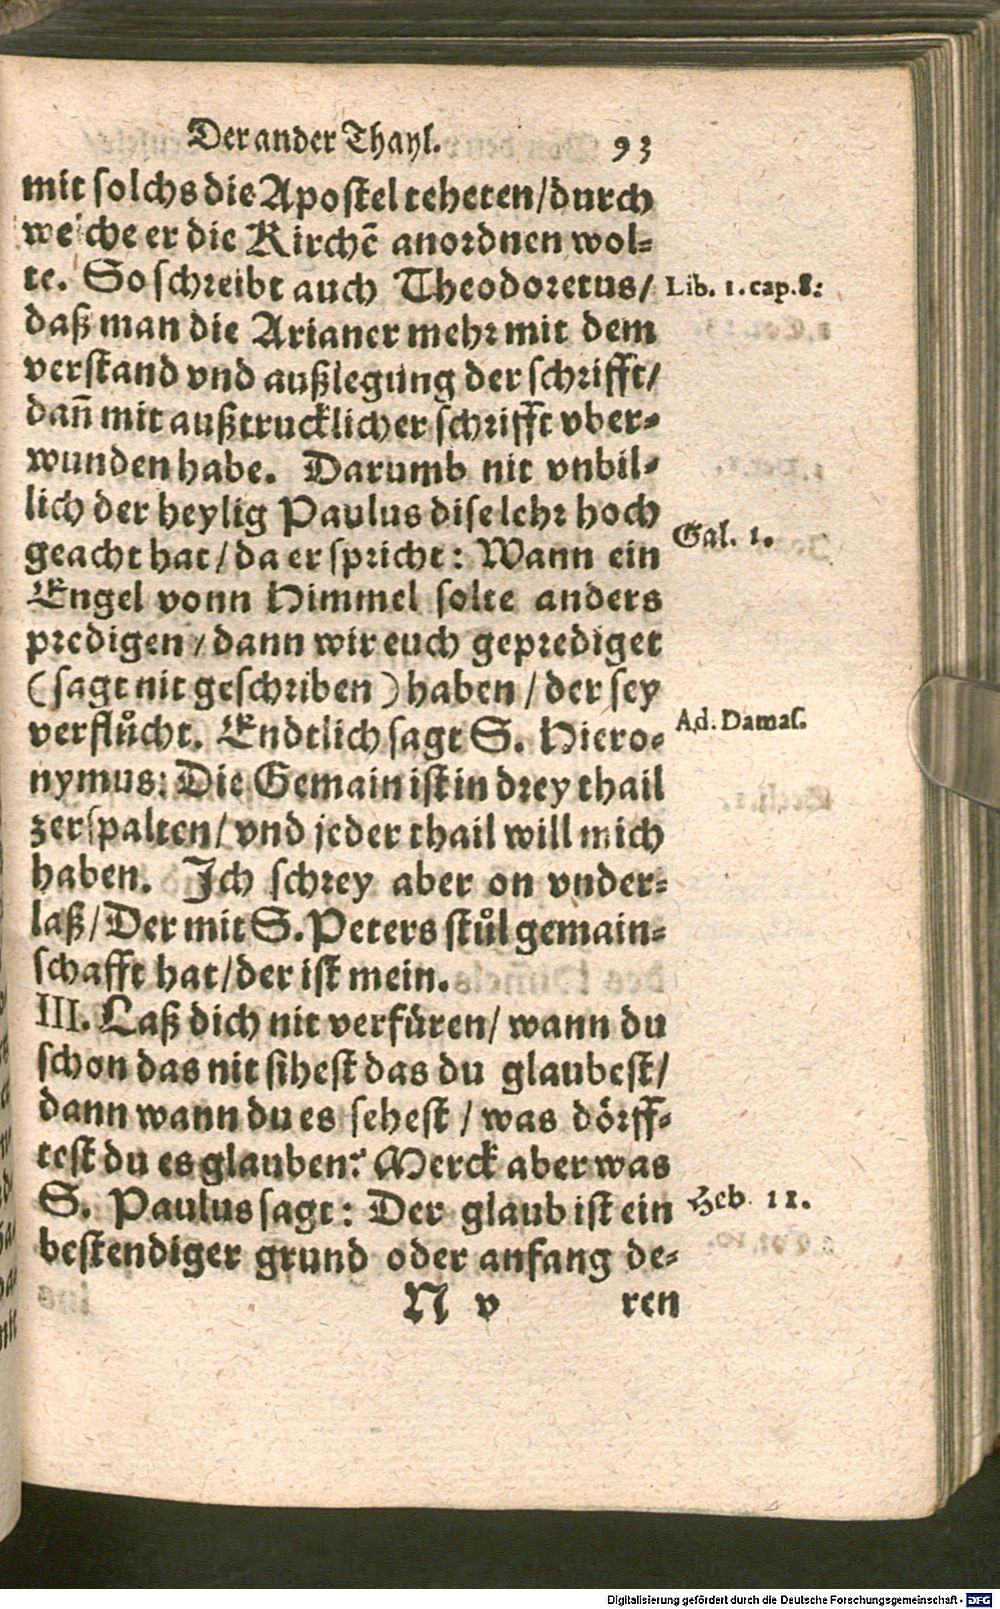 Der ander Thayl. 93
mit solchs die Apostel teheten/durch
welche er die Kirchē anordnen wol-
te. So schreibt auch Theodoretus/ Lib. 1. cap. 8:
daß man die Arianer mehr mit dem
verstand vnd außlegung der schrifft/
dañ mit außtrucklicher schrifft vber-
wunden habe. Darumb nit vnbil-
lich der heylig Paulus dise lehr hoch
geacht hat/da er spricht: Wann ein Gal. 1.
Engel vonn Himmel solte anders
predigen/dann wir euch geprediget
(sagt nit geschriben) haben/der sey
verflůcht. Endtlich sagt S. Hiero- Ad. Damas.
nymus: Die Gemain ist in drey thail
zerspalten/vnd jeder thail will mich
haben. Ich schrey aber on vnder-
laß/Der mit S. Peters stůl gemain-
schafft hat/der ist mein.
III. Laß dich nit verfüren/wann du
schon das nit sihest das du glaubest/
dann wann du es sehest/was dörff-
test du es glauben? Merck aber was
S. Paulus sagt: Der glaub ist ein Heb. 11.
bestendiger grund oder anfang de-
N v ren
Digitalisierung gefördert durch die Deutsche Forschungsgemeinschaft - DFG